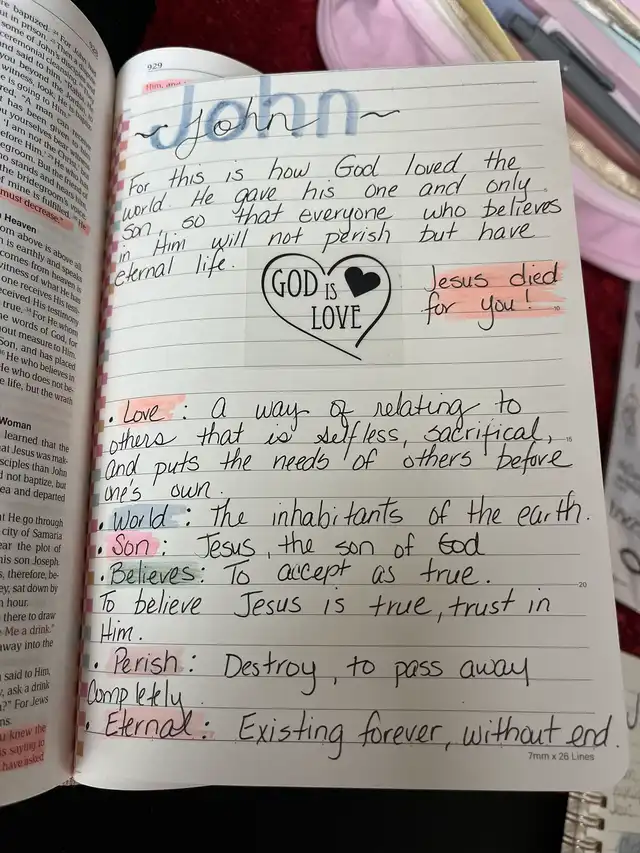 929
Him, and
John
~ John ~
For this is how God loved the
world. He gave his one and only
son, so that everyone who believes
in Him will not perish but have
eternal life.
GOD IS
LOVE
Jesus died
for you!
• Love: a way of relating to
others that is selfless, sacrifical,
and puts the needs of others before
one's own.
• World: The inhabitants of the earth.
• Son: Jesus, the son of God
• Believes: To accept as true.
To believe Jesus is true, trust in
Him.
• Perish: Destroy, to pass away
Completely.
• Eternal: Existing forever, without end.
16
20
7mm x 26 Lines
must decrease."
Heaven
om above is above all,
n is earthly and speaks
comes from heaven is
witness of what He has
one receives His testi-
eceived His testimony
true. 34 For He whom
he words of God, for
out measure to Him.
Son, and has placed
He who believes in
He who does not be-
e life, but the wrath
Woman
learned that the
at Jesus was mak-
sciples than John
d not baptize, but
ea and departed
t He go through
city of Samaria
ear the plot of
his son Joseph.
s, therefore, be-
ey, sat down by
h hour.
there to draw
Me a drink."
away into the
said to Him,
, ask a drink
?" For Jews
ns.
u knew the
is saying to
have asked